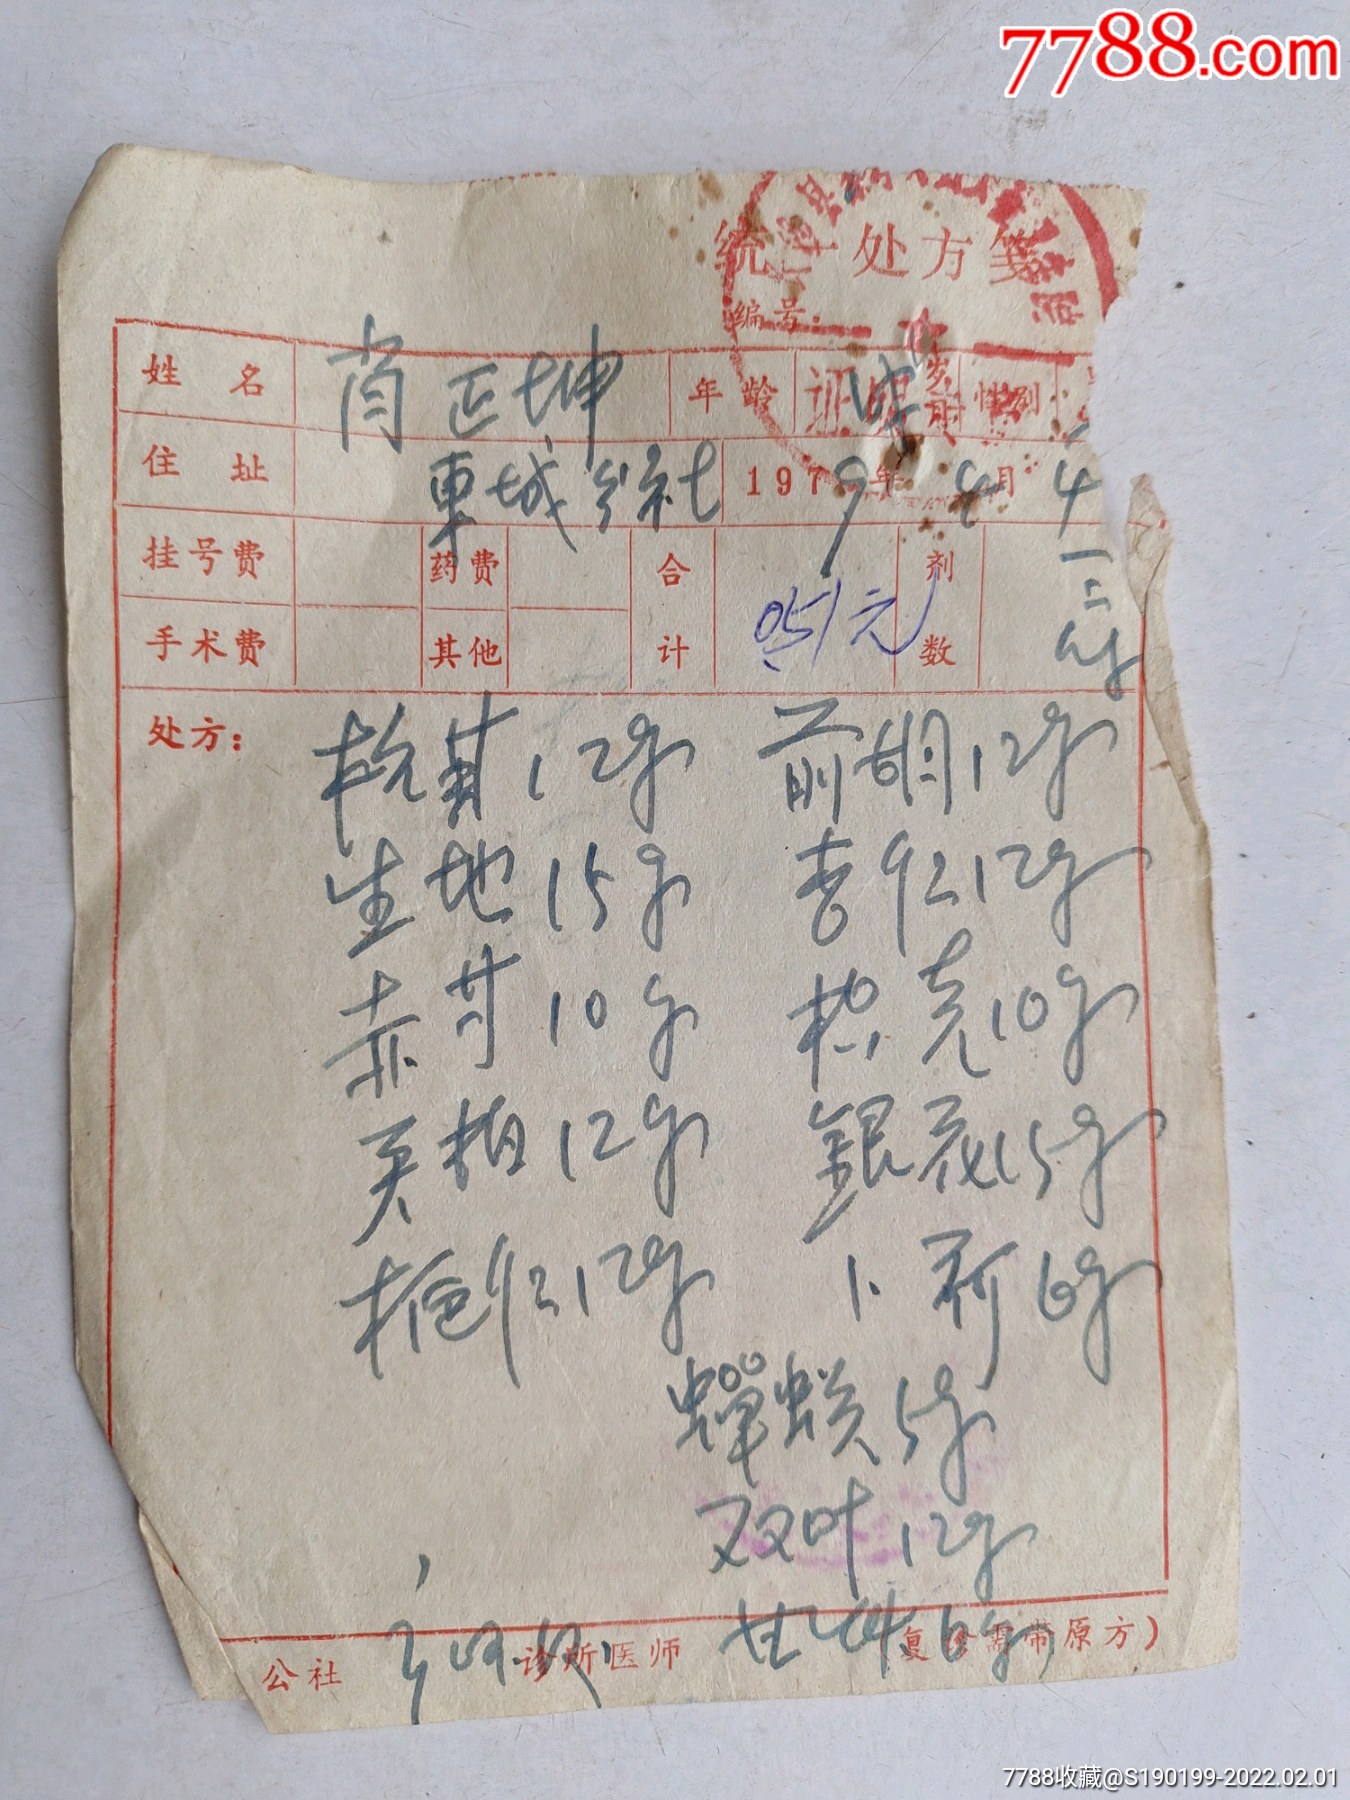 7788.com
统一处方笺
编号:
姓名 肖正坤 年龄 岁 性别
住址 東城公社 1979年 4月 4
挂号费 药费 合 剂
手术费 其他 计 051元 数
处方: 杭菊12 前胡12
生地15 杏仁12
赤芍10 枳壳10
黄柏12 銀花15
栀仁12 卜荷6
蟬蛻5
双叶12
甘草6
公社 诊所医师 复诊需带原方)
7788收藏@S190199-2022.02.01